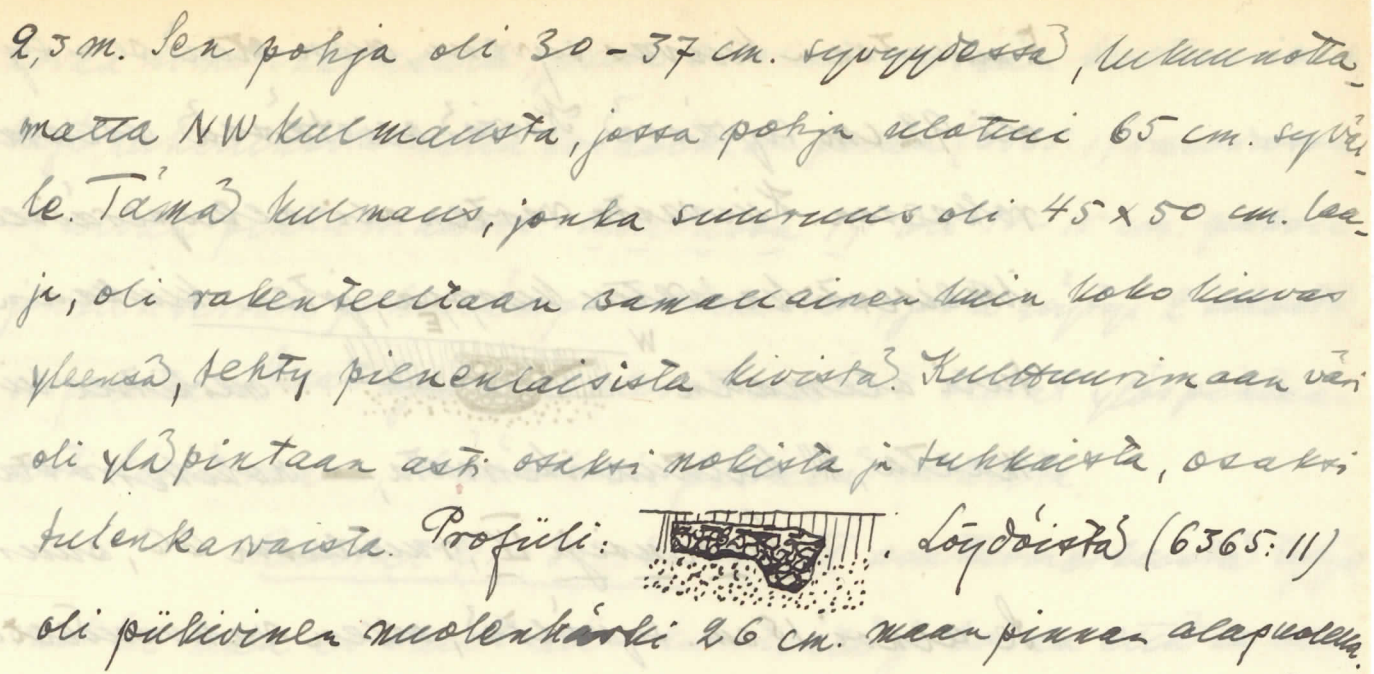 2,3 m. Sen pohja oli 30-37 cm. syvyydessä, lukuunotta-
matta NW kulmausta, jossa pohja ulottui 65 cm. syväl-
le. Tämä kulmaus, jonka suuruus oli 45 x 50 cm. laa-
ja, oli rakenteeltaan samallainen kuin koko kiuvas
yleensä, tehty pienenlaisista kivistä. Kulttuurimaan väri
oli yläpintaan asti osaksi nokista ja tuhkaista, osaksi
tulenkarvaista. Profiili: . Löydöistä (6365:11)
oli piikivinen nuolenkärki 26 cm. maan pinnan alapuolella.
W E